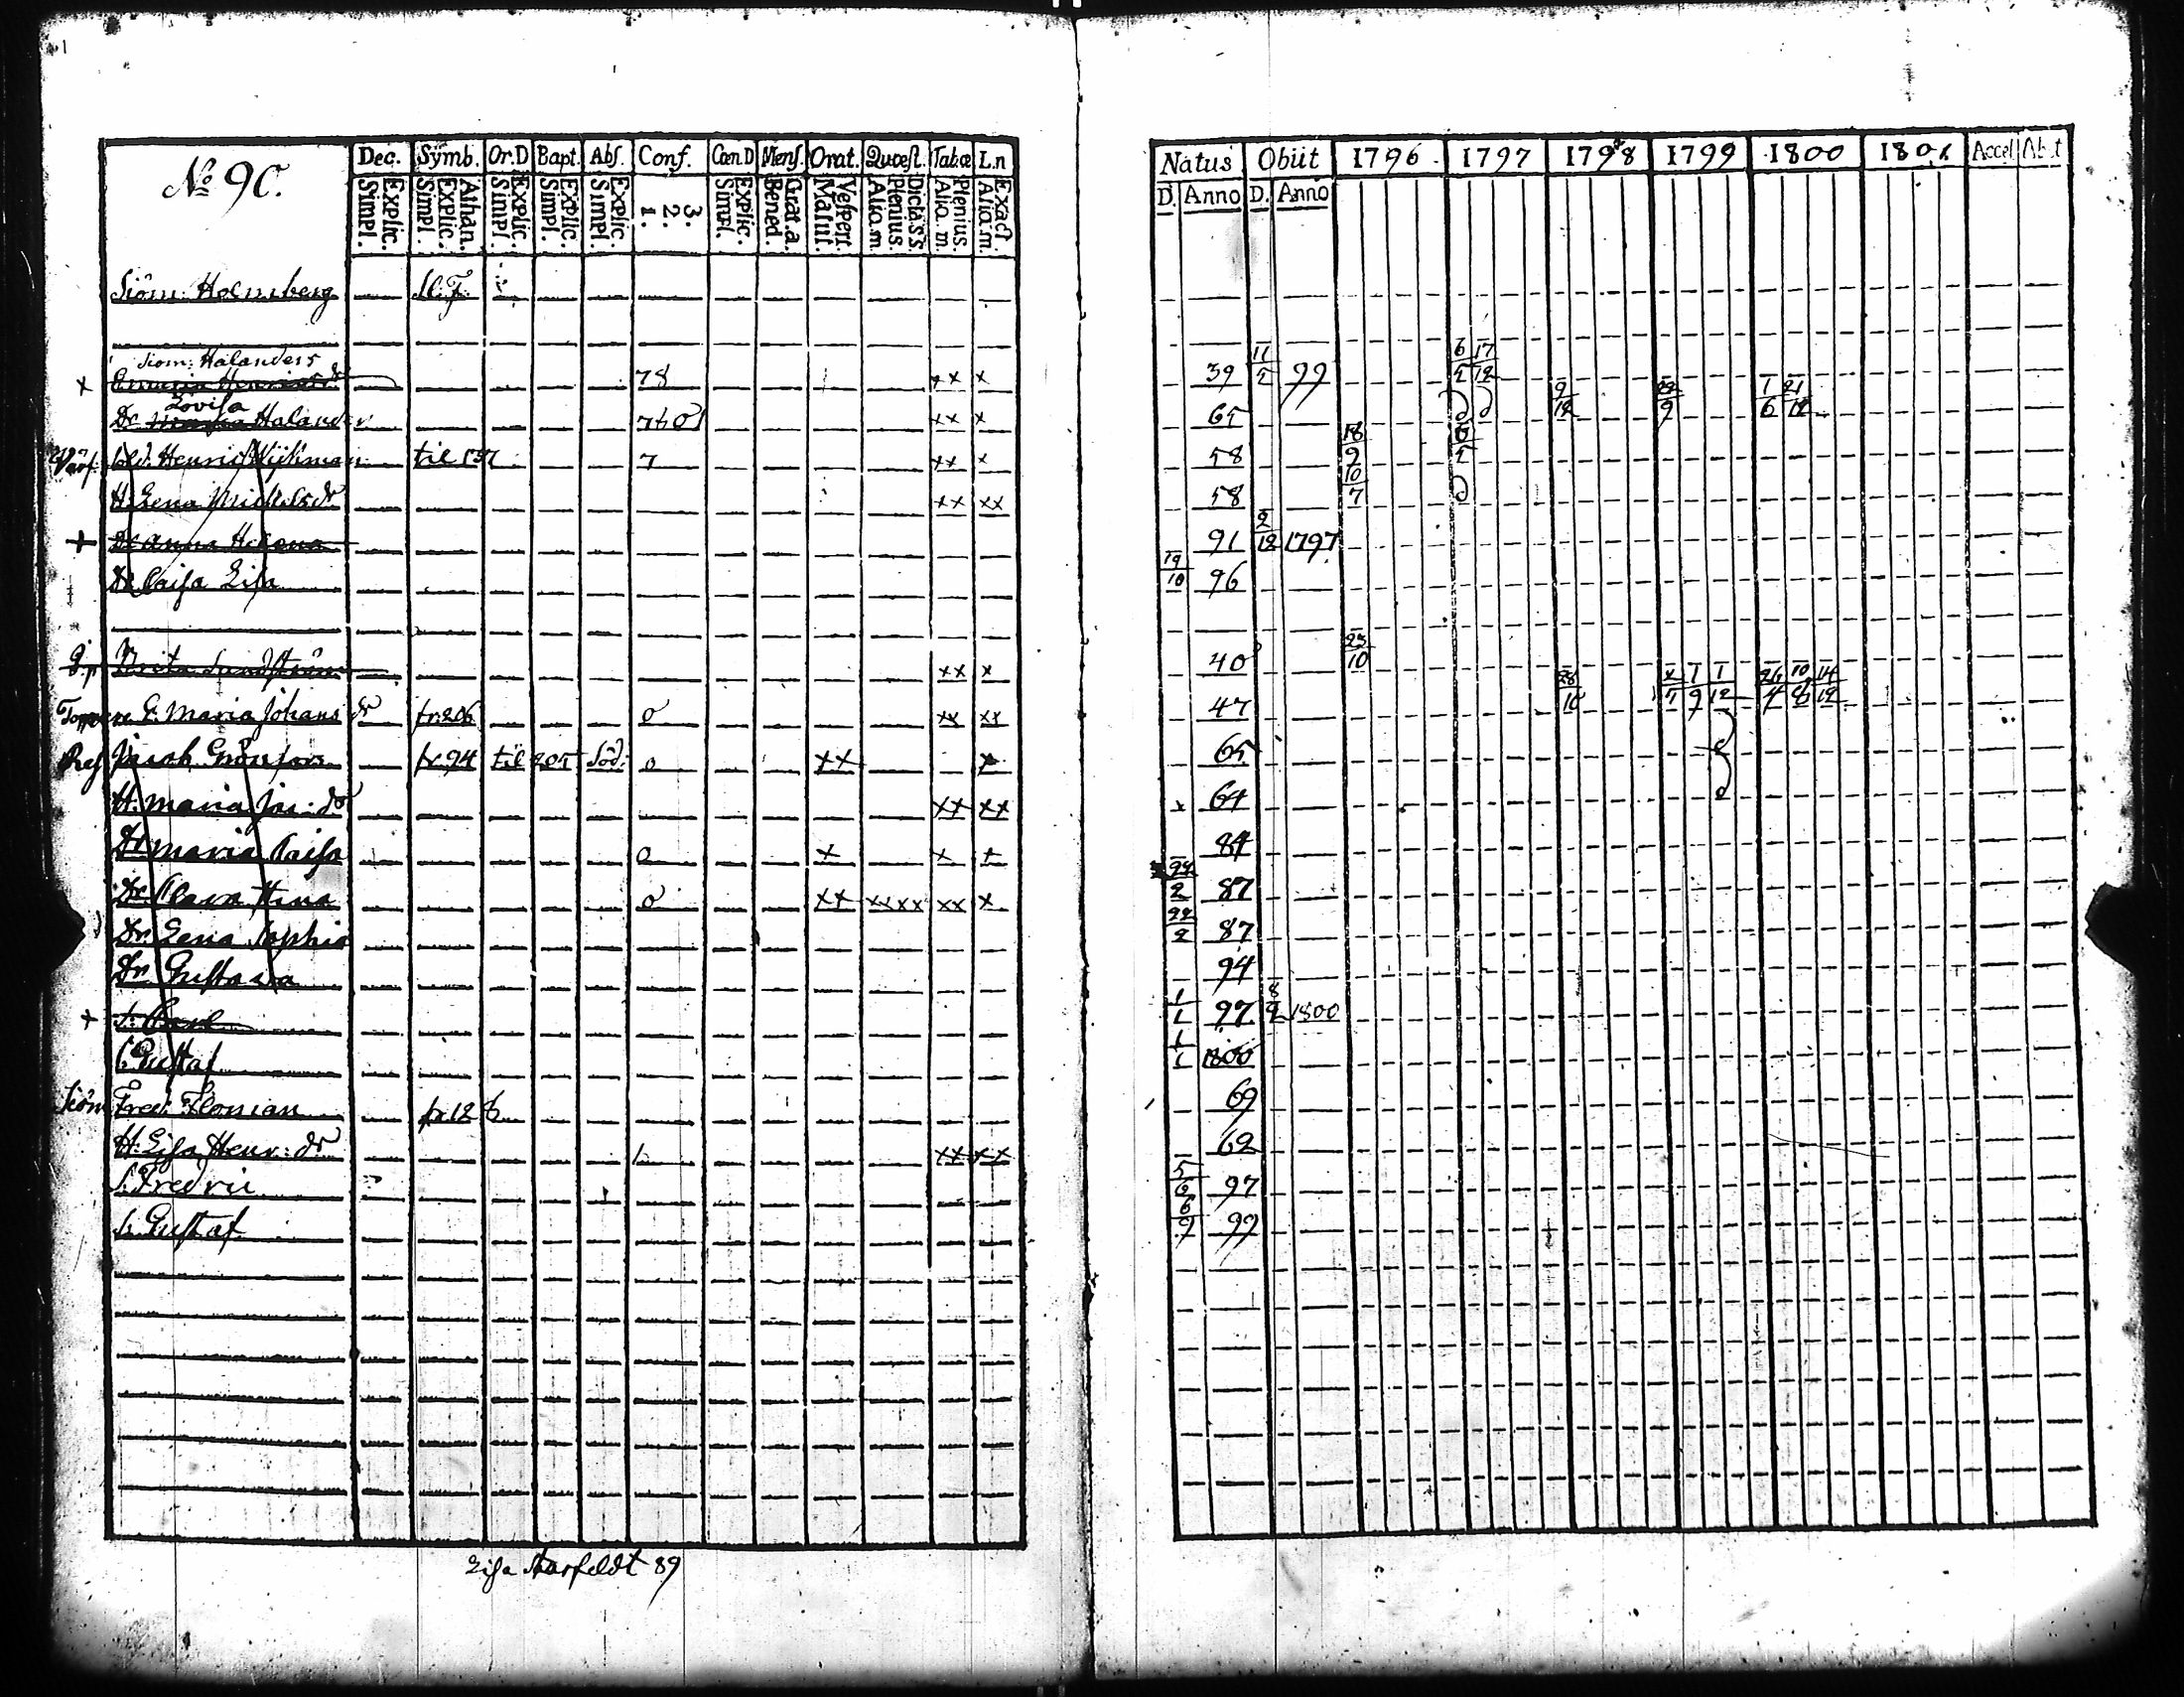 Nº 90.
Dec. Symb. Or.D Bapt. Abs. Conf. Can.D Mens. Orat. Quæst. Tabæ L.n
Explic. Simpl. Athan. Explic. Simpl. Explic. Simpl. Explic. Simpl. Explic. Simpl. 3. 2. 1. Explic. Simpl. Grat.a. Bened. Vespert. Matut. Dicta S.S. Plenius. Aliq.m. Plenius. Aliq.m. Exact. Aliq.m.
Natus Obiit 1796 1797 1798 1799 1800 1801 Accel Abit
D. Anno D. Anno
Siöm: Holmberg
Siöm: Halanders
x Henricsdr 78 xx x 39 11/2 99 6/2 17/12
Dr Lovisa Halander xx x 65 9/12 22/9 1/6 21/12
Sold. Henric Wijkman til 137 7 xx x 58 18/9 6/2
H. Lena Michelsdr xx xx 58 10/7
+ Dr Anna Helena 91 2/12 1797
Dr Caisa Lisa 19/10 96
Brita Sundström xx x 40 23/10
E. Maria Johansdr fr. 206 o xx xx 47 26/4 10/8 14/12
Jacob Grönfors fr. 94 til 205 Söd. o xx x 65
H. Maria Jac: dr xx xx x 64
Dr Maria Caisa o x x x 84
Dr Clara Stina o xx xxxx xx x 22/2 87
Dr. Lena Sophia 22/2 87
Dr Gustava 94
+ S. Carl 1/1 97 8/9 1800
S. Gustaf 1/1 1800
Siöm Fred: Floman fr. 126 69
H: Lisa Henr: dr xx xx 62
S. Fredric 5/2 97
S. Gustaf 6/9 99
Lisa Starfeldt 89